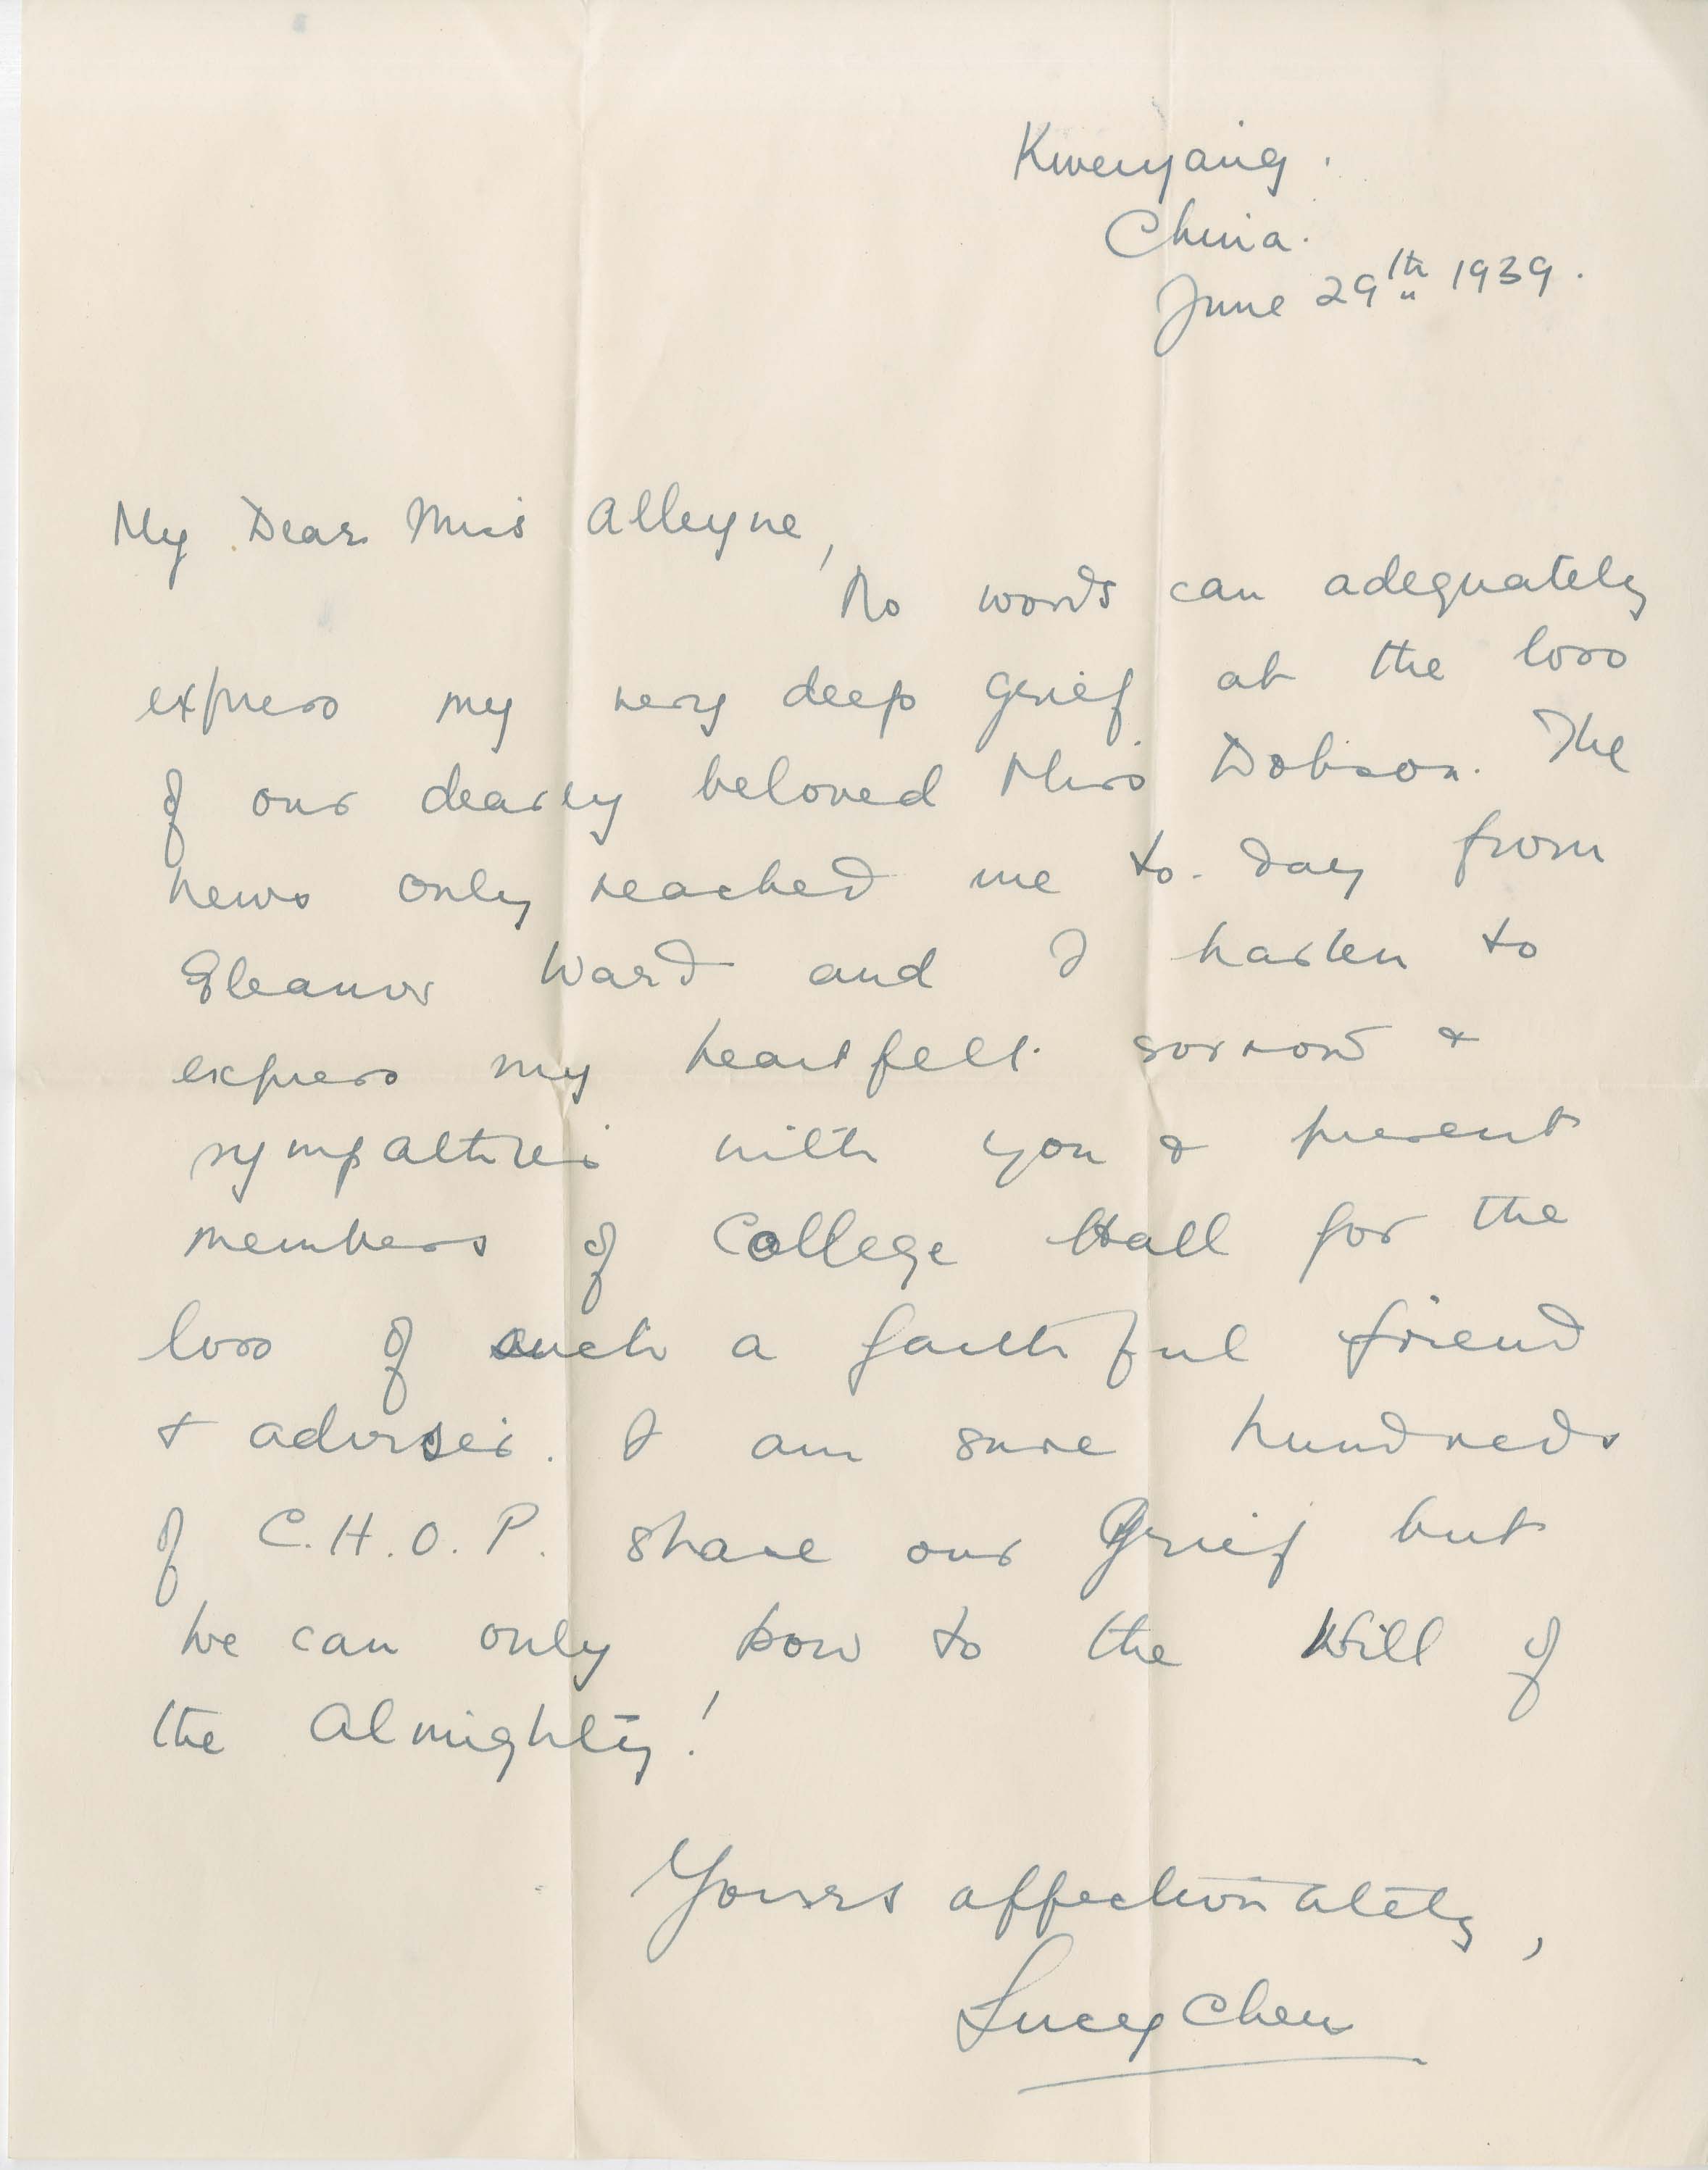 Kweiyang.
China.
June 29th 1939.
My Dear Miss Alleyne,
No words can adequately
express my very deep grief at the loss
of our dearly beloved Miss Dobson. The
news only reached me to-day from
Eleanor Ward and I hasten to
express my heartfelt sorrow &
sympathies with you & present
members of College Hall for the
loss of such a faithful friend
& adviser. I am sure hundreds
of C.H.O.P. share our grief but
we can only bow to the Will of
the Almighty!
Yours affectionately,
Lucy Chen